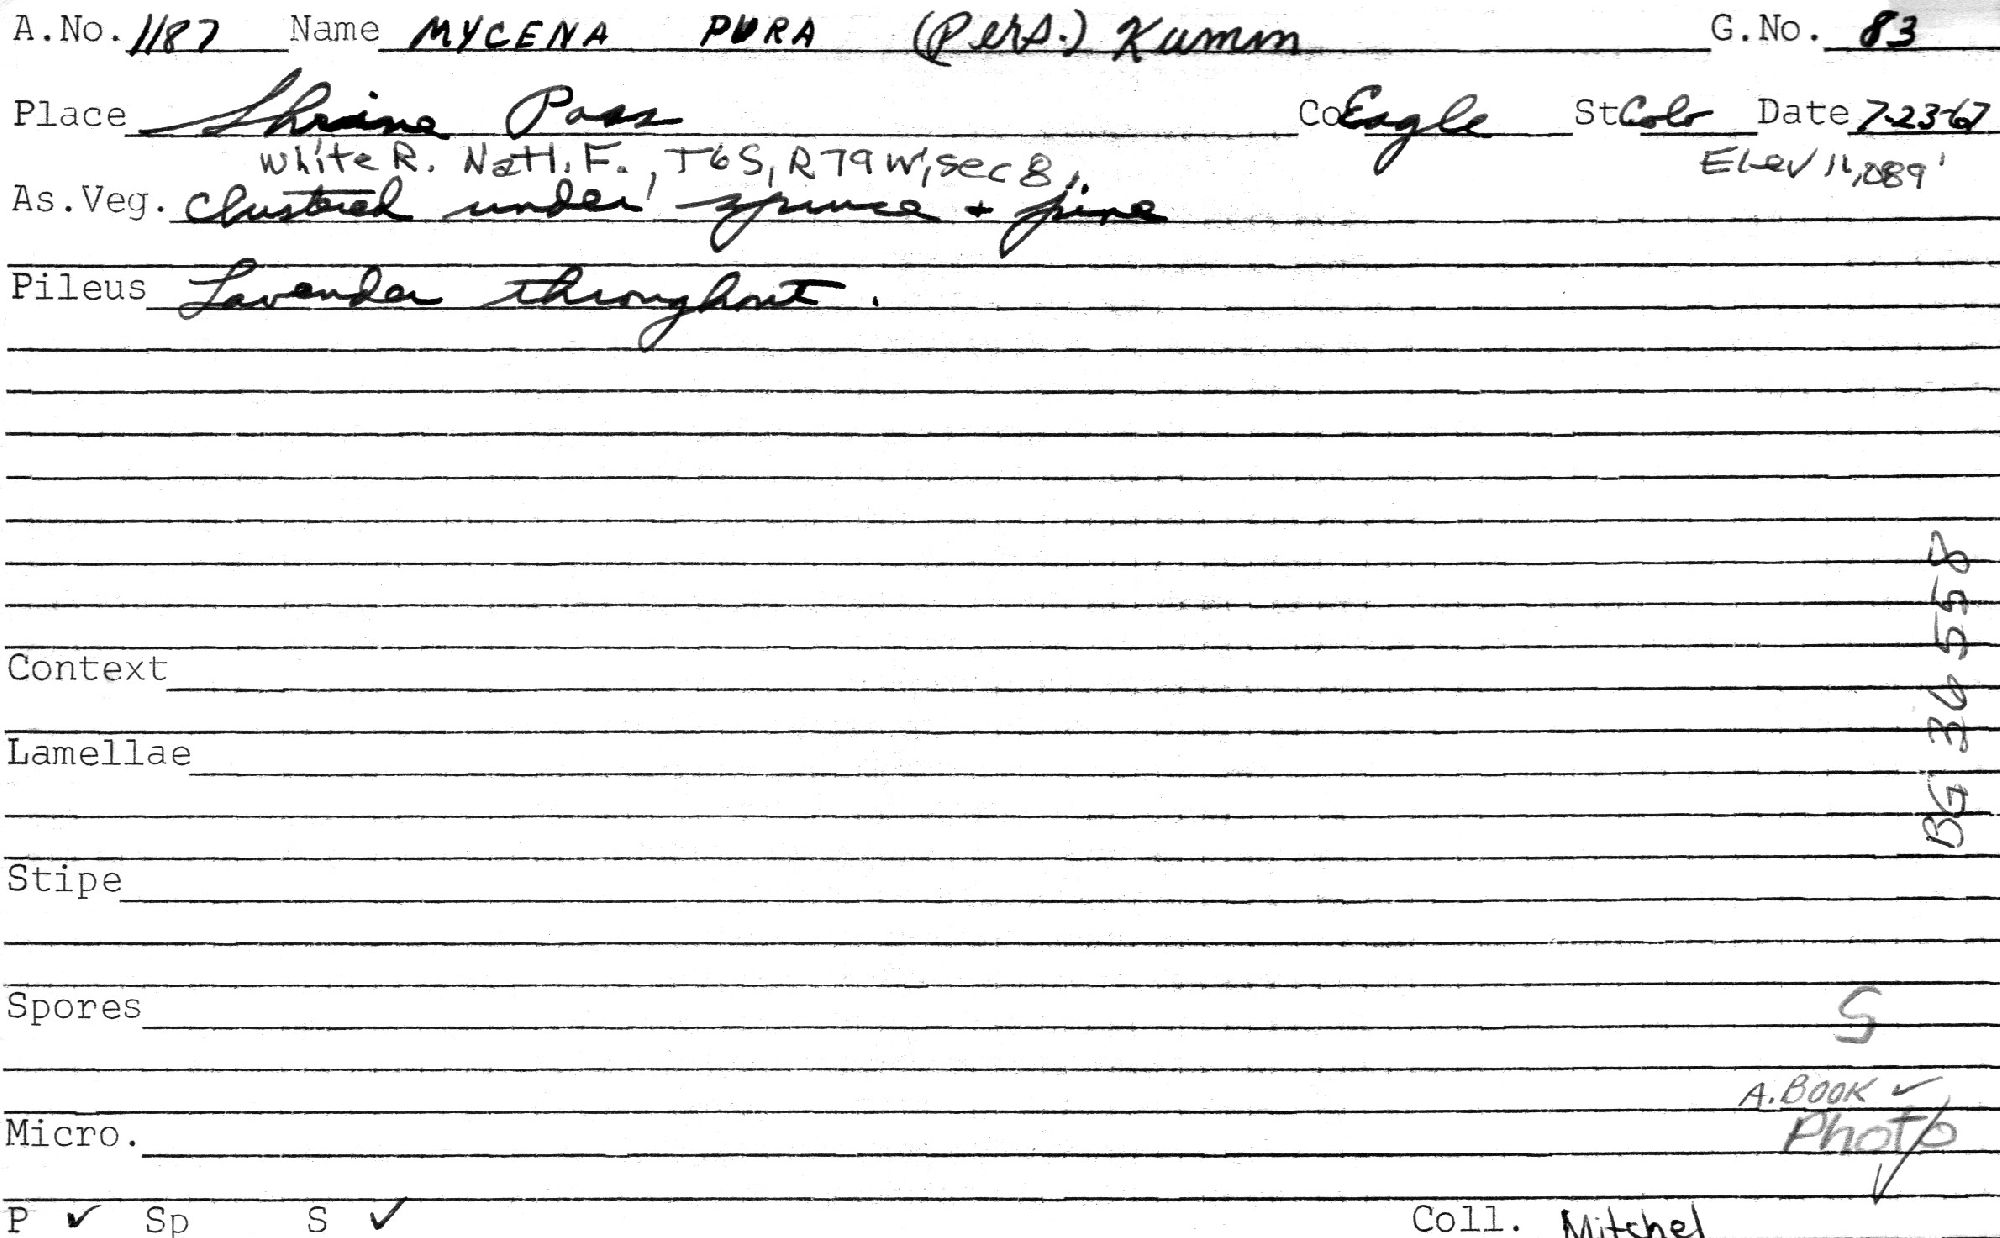 A.No. 1187 Name MYCENA PURA (Pers.) Kumm G.No. 83
Place Shrine Pass Co Eagle St Colo Date 7-23-67
White R. Natl. F., T6S, R79W, sec 8, Elev 11,089'
As.Veg. Clustered under spruce + pine
Pileus Lavender throughout.
Context
Lamellae
Stipe
Spores
S
A. BOOK ✓
Photo ✓
Micro.
P ✓ Sp S ✓ Coll. Mitchel
BG 36558